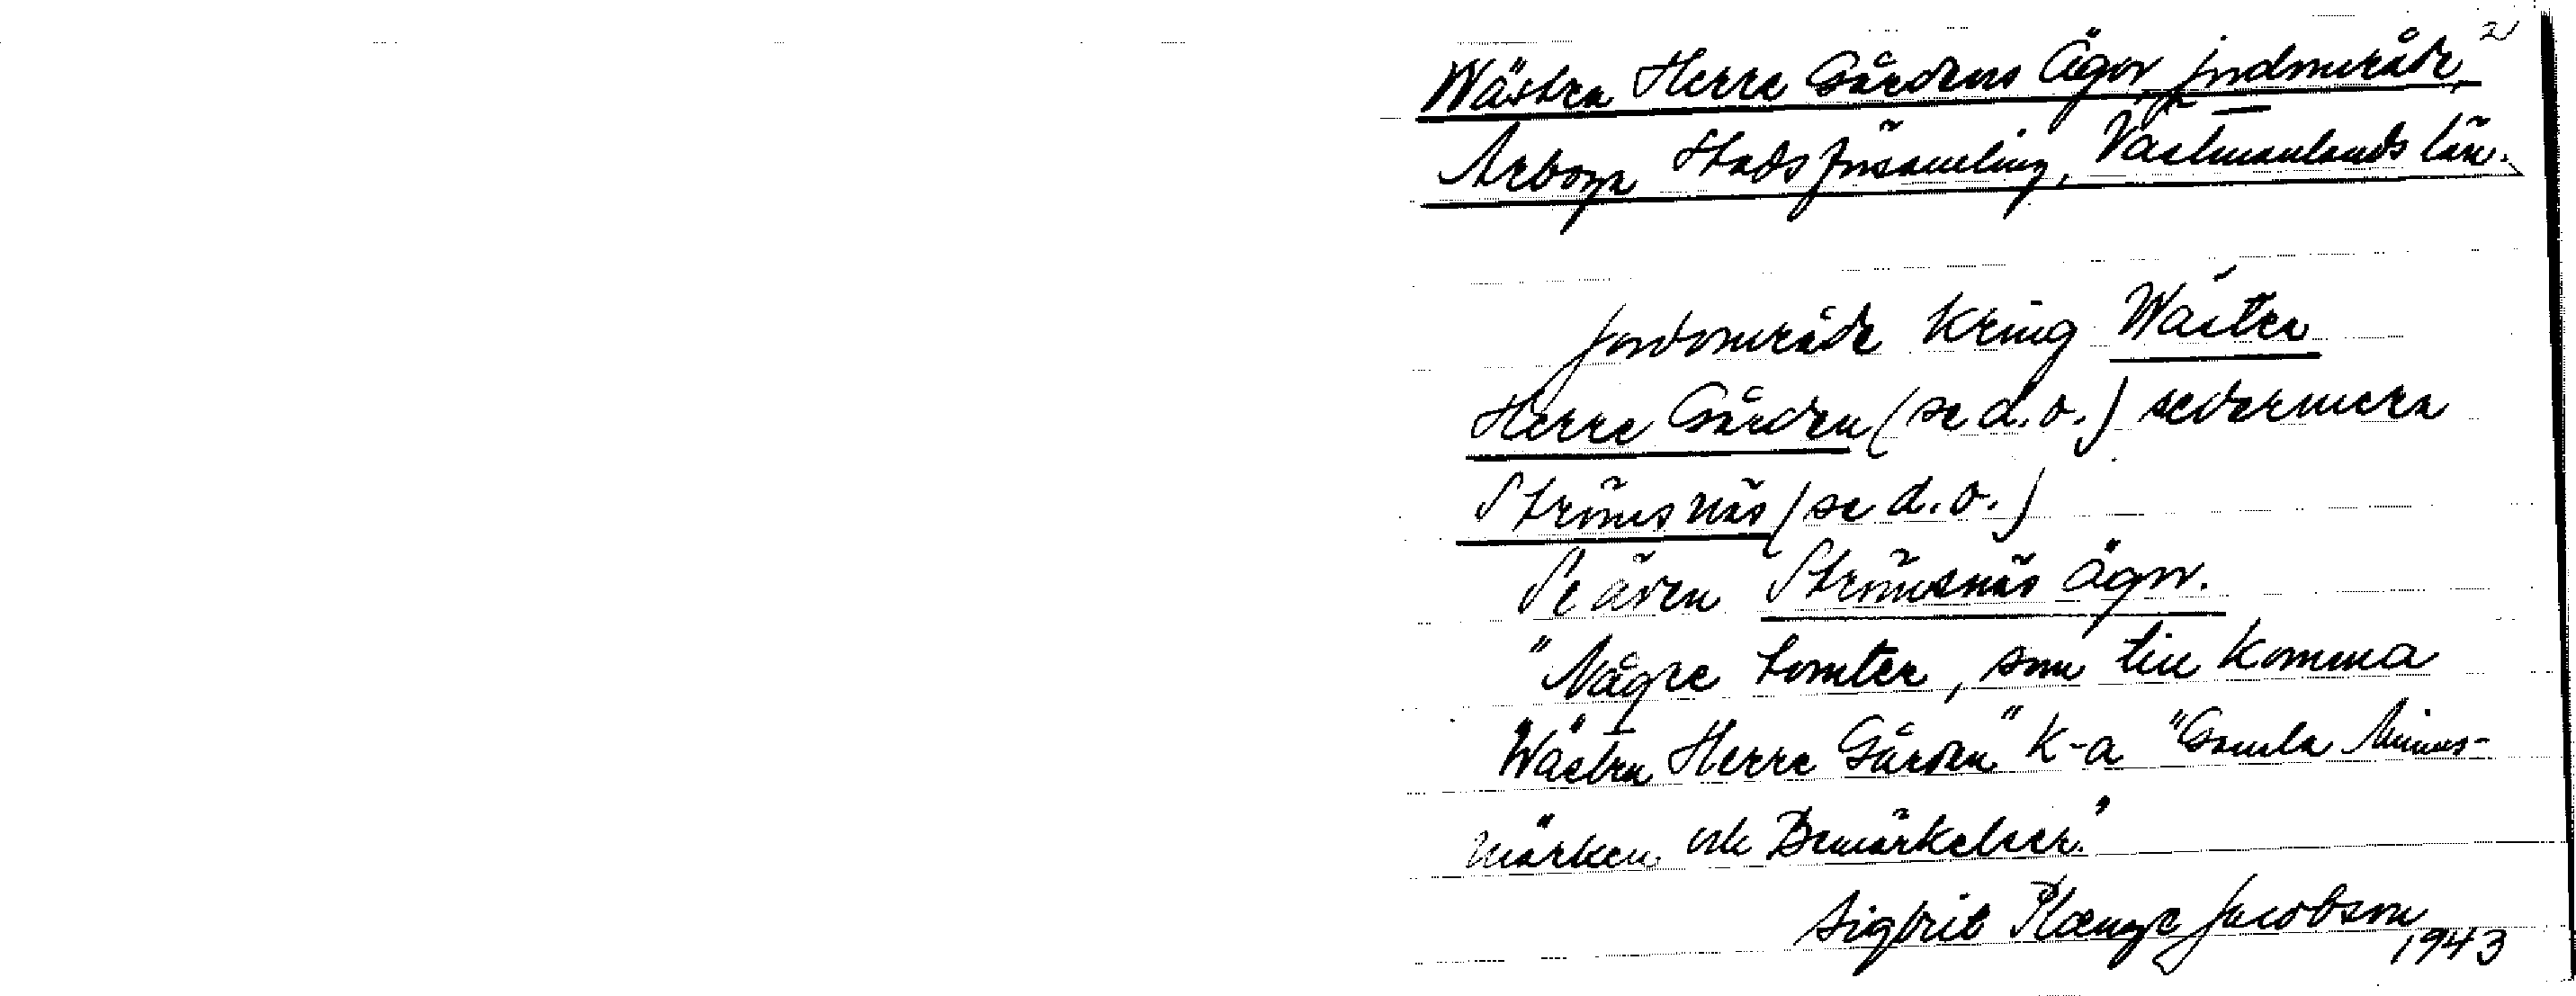 2)
Wästra Herre Gårdens Ägor, jordområde,
Arboga Stadsförsamling, Västmanlands län.
Jordområde kring Wästra
Herre Gården (se d.o.) sedermera
Strömsnäs (se d.o.)
Se även Strömsnäs ägor.
"Någre tomter, som till komma
Wästra Herre Gården" K-a "Gamla Minnes-
märken och Bemärkelser."
Sigbrit Plænge Jacobson
1943